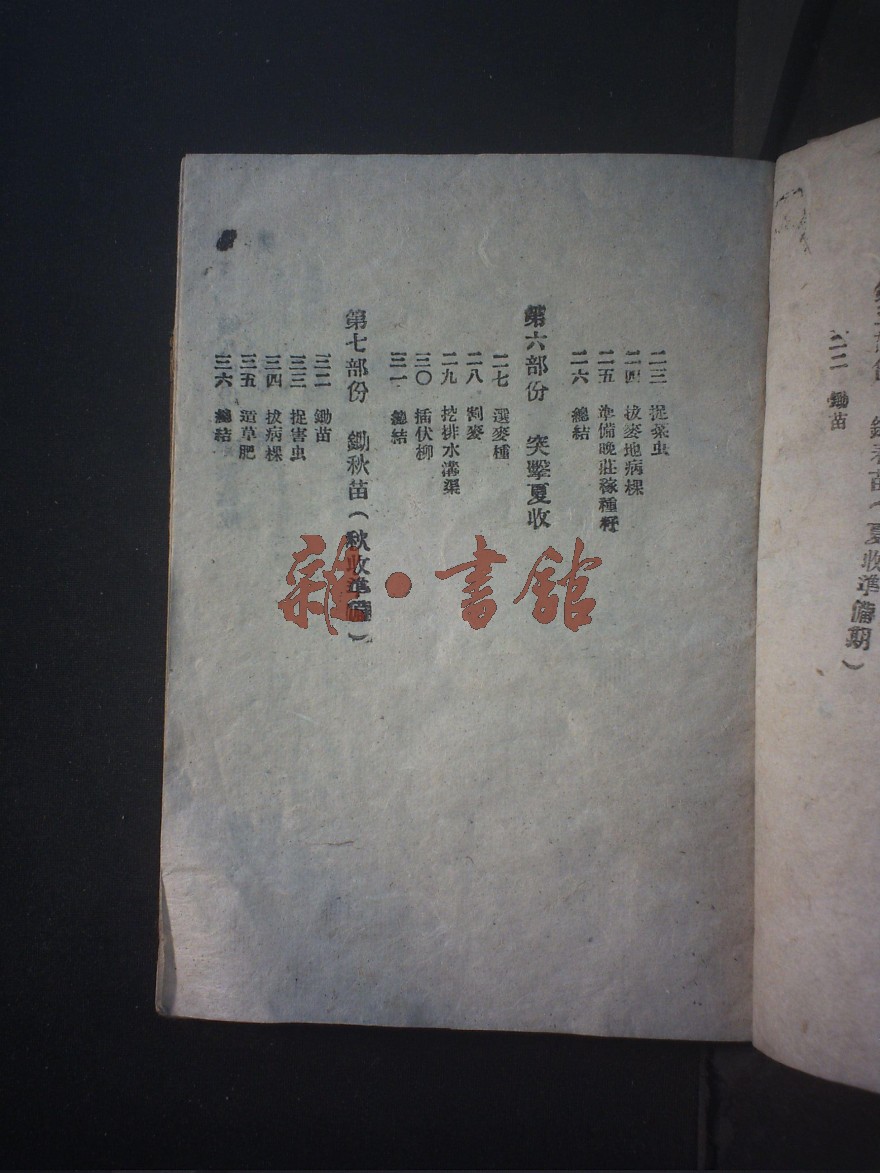 二二 鋤苗
二三 捉菜虫
二四 拔麥地病棵
二五 準備晚莊稼種籽
二六 總結
第六部份 突擊夏收
二七 選麥種
二八 割麥
二九 挖排水溝渠
三〇 插伏柳
三一 總結
第七部份 鋤秋苗(秋收準備)
三二 鋤苗
三三 捉害虫
三四 拔病棵
三五 造草肥
三六 總結
雜·書館